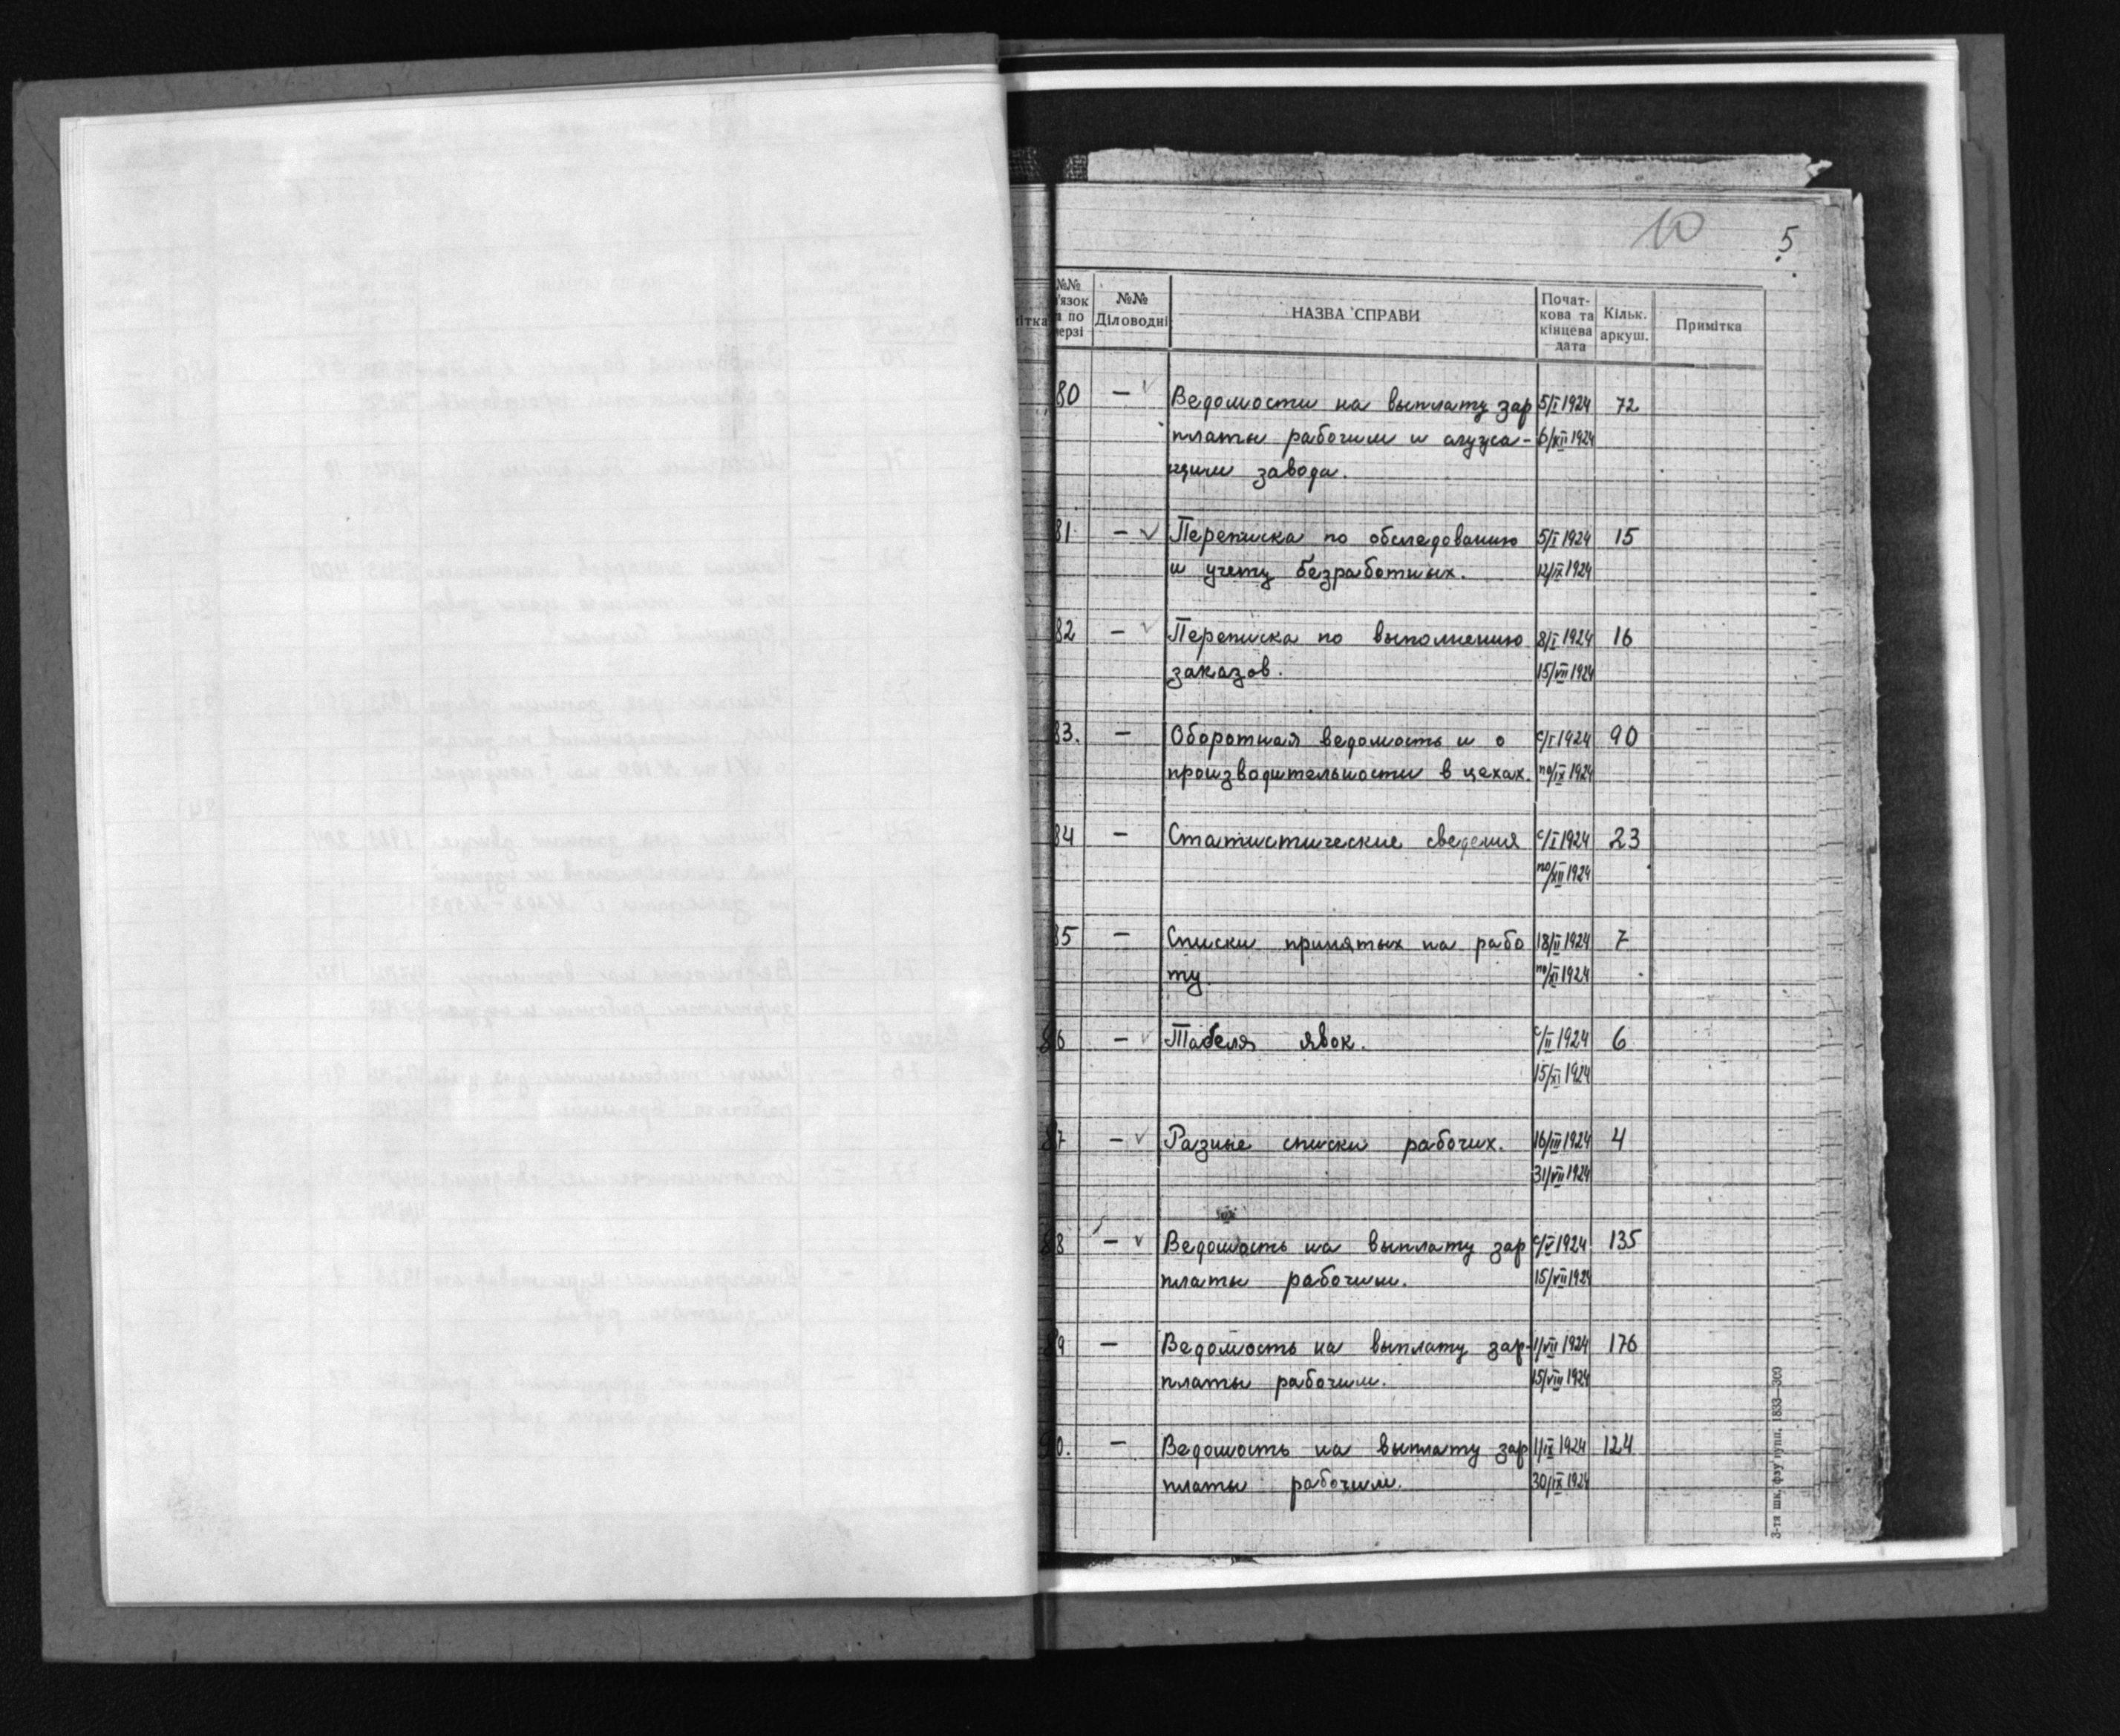 10
5
№№
'язок
а по
ерзі
№№
Діловодні
НАЗВА СПРАВИ
Почат-
кова та
кінцева
дата
Кільк.
аркуш.
Примітка
ітка
80 — Ведомости на выплату зар 5/I 1924 72
платы рабочим и служа- 6/XII 1924
щим завода.
81 — Переписка по обследованию 5/I 1924 15
и учету безработных. 12/IX 1924
82 — Переписка по выполнению 8/I 1924 16
заказов. 15/VII 1924
83. — Оборотная ведомость и о с/I 1924 90
производительности в цехах. по/IX 1924
84 — Статистические сведения с/I 1924 23
по/XII 1924
85 — Списки принятых на рабо 18/II 1924 7
ту. по/XI 1924
86 — Табеля явок. с/II 1924 6
15/XI 1924
87 — Разные списки рабочих. 16/III 1924 4
31/VII 1924
88 — Ведомость на выплату зар с/V 1924 135
платы рабочим. 15/VII 1924
89 — Ведомость на выплату зар- 1/VII 1924 176
платы рабочим. 15/VIII 1924
90. — Ведомость на выплату зар 1/IX 1924 124
платы рабочим. 30/IX 1924
3-тя шк. фзу 1833—300